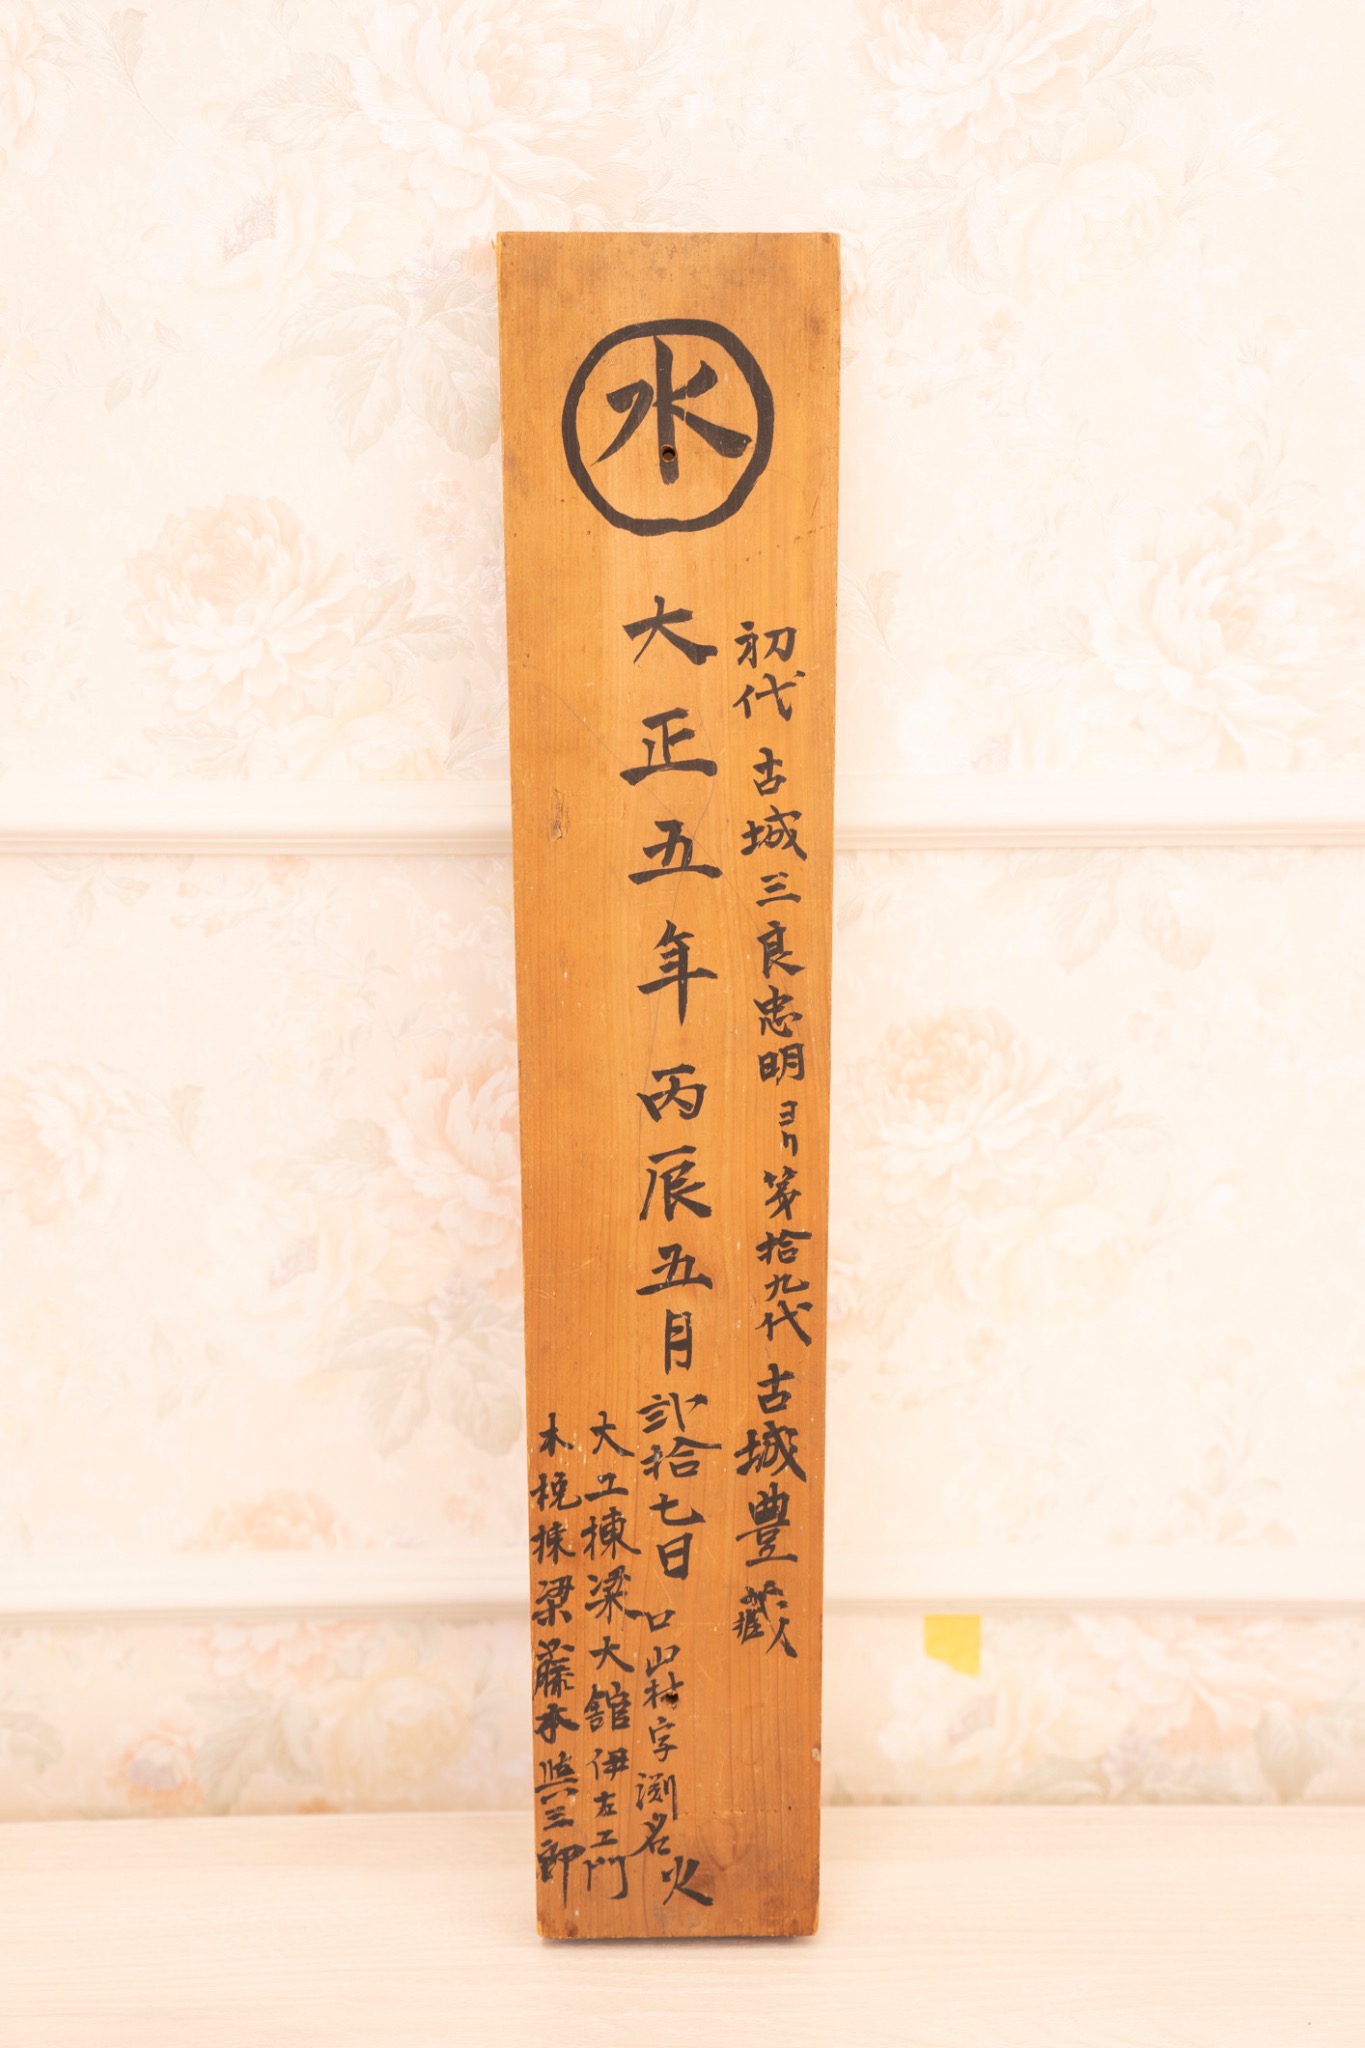 水
初代 古城三良忠明ヨリ第拾九代 古城豊蔵
大正五年丙辰五月弐拾七日 口山村字渕名
火
大工棟梁大舘伊左エ門
木挽棟梁藤本與三郎